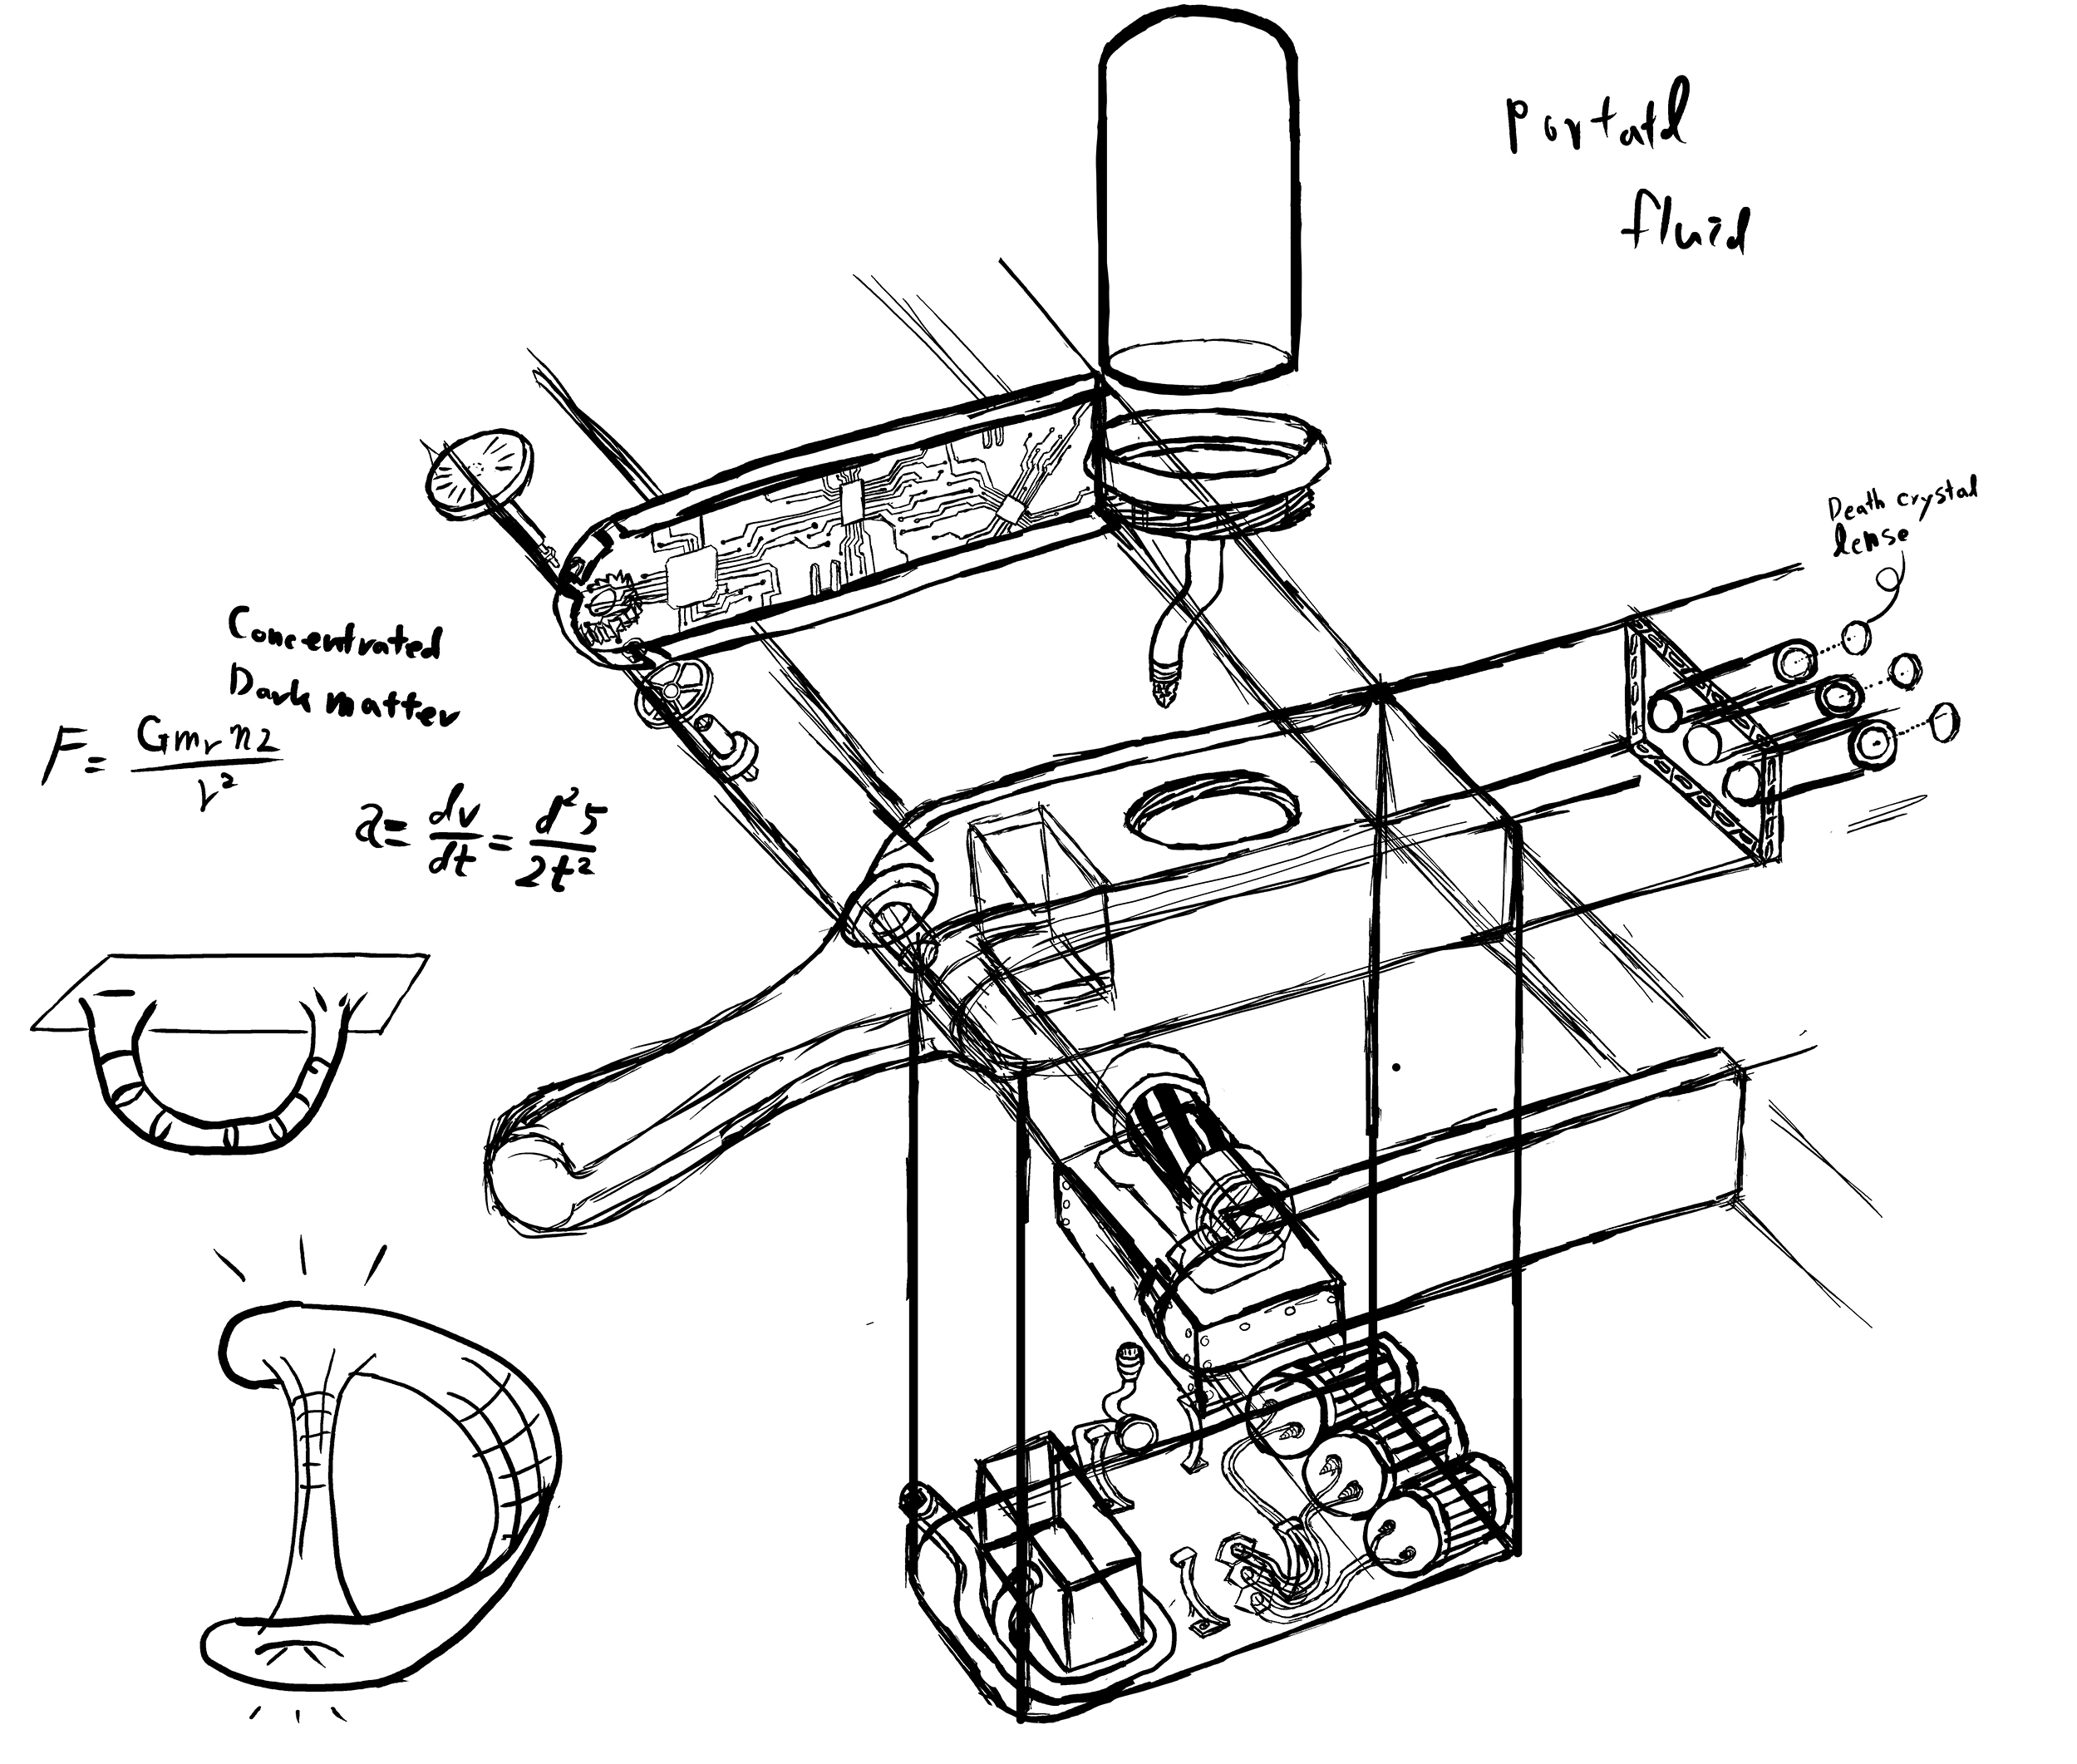 Portald
fluid
Death crystal
lense
Concentrated
Dark matter
F = Gmr m2 / r²
a = dv/dt = d²s/2t²